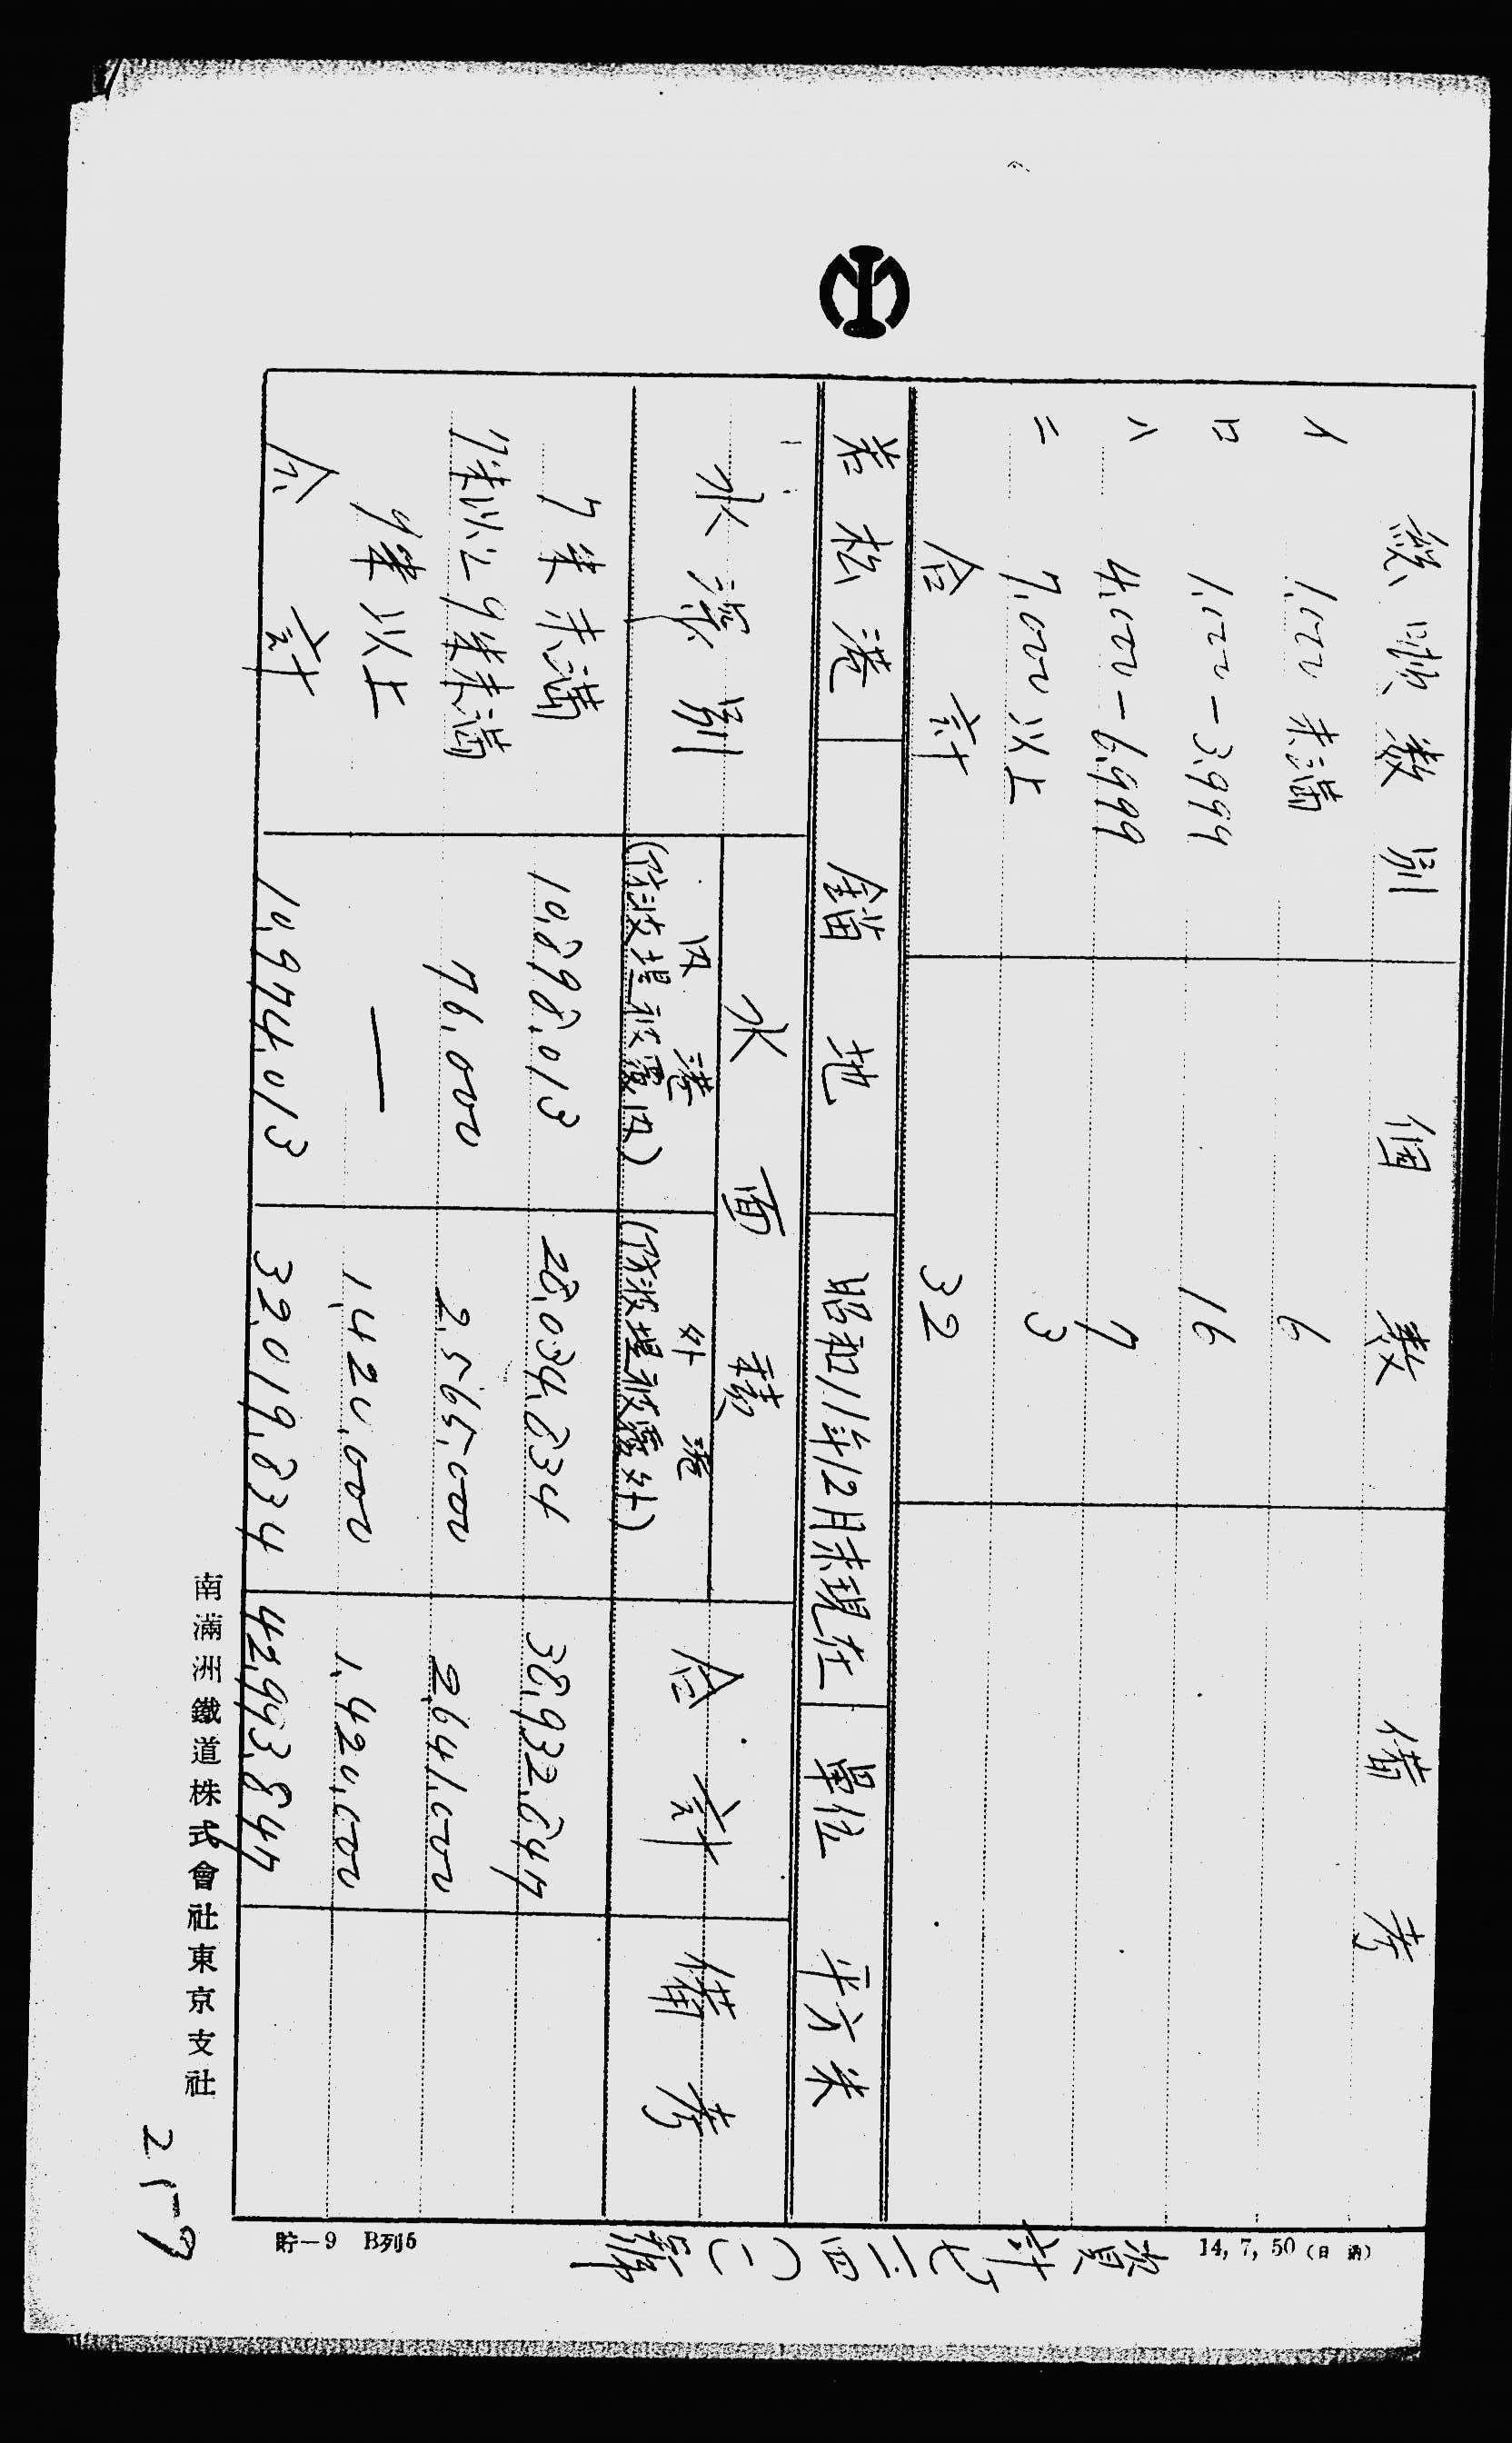 總噸数別 個数 備考
イ 1,000 未満 6
ロ 1,000－3,999 16
ハ 4,000－6,999 7
ニ 7,000 以上 3
合計 32
若松港 錨地 昭和11年12月末現在 單位 平方米
水深別 水面積 合計 備考
内港 外港
(防波堤被覆内) (防波堤被覆外)
7米未満 10,898,013 28,034,834 38,932,847
7米以上9米未満 76,000 2,565,000 2,641,000
9米以上 — 1,420,000 1,420,000
合計 10,974,013 32,019,834 42,993,847
南滿洲鐵道株式會社東京支社
貯－9 B列5
14, 7, 50
259